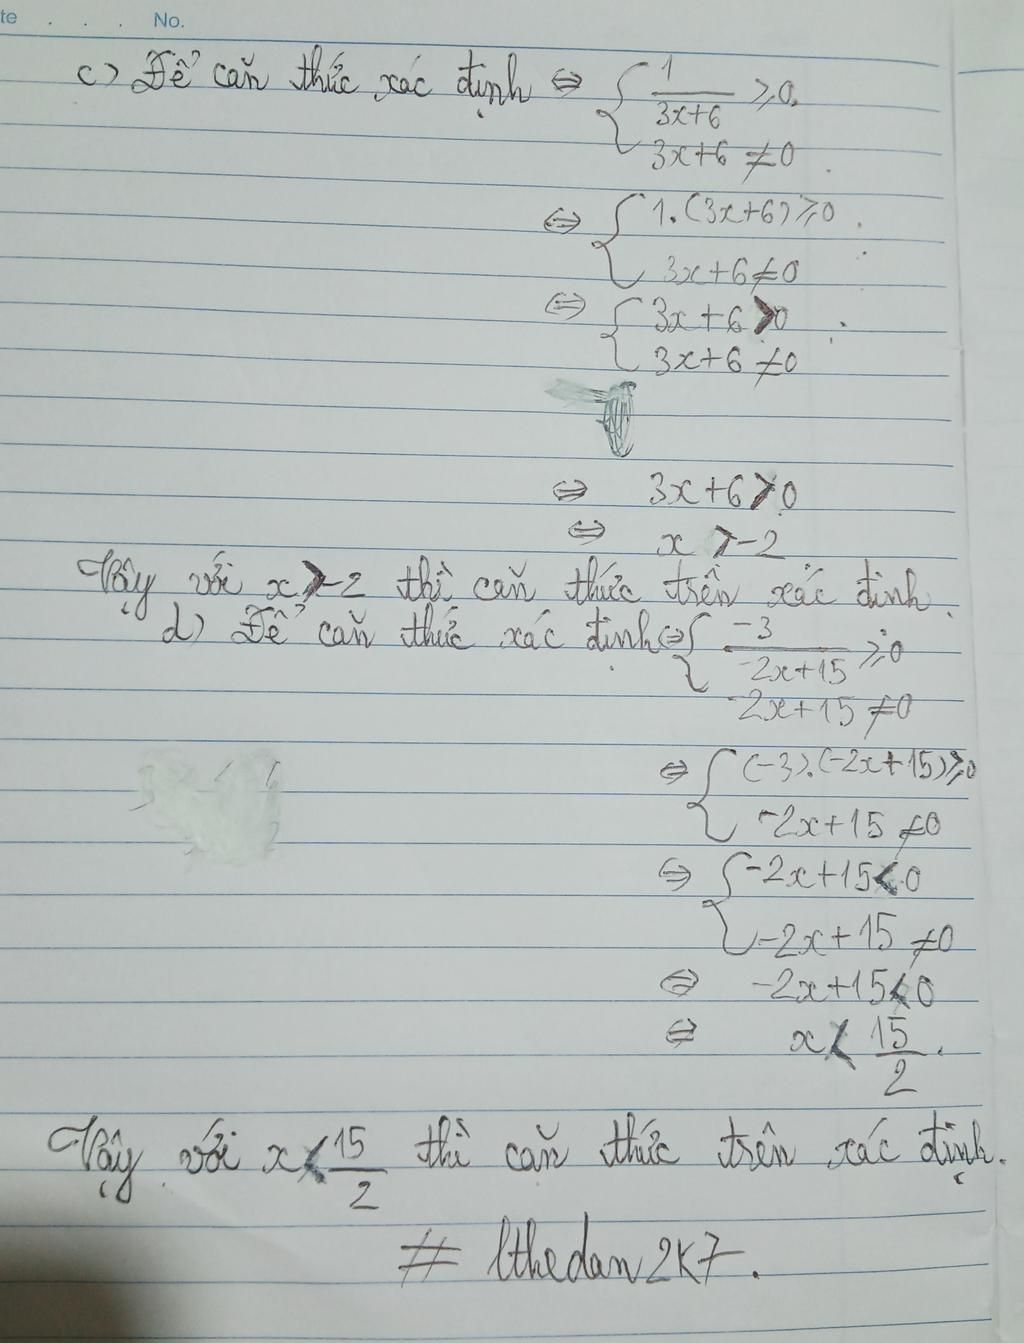 te . . . No.
c) Để căn thức xác định ⇔ { 1/(3x+6) ≥ 0.
3x+6 ≠ 0
⇔ { 1.(3x+6) ≥ 0
3x+6 ≠ 0
⇔ { 3x+6 > 0
3x+6 ≠ 0
⇔ 3x+6 > 0
⇔ x > -2
Vậy với x > -2 thì căn thức trên xác định.
d) Để căn thức xác định ⇔ { -3/(-2x+15) ≥ 0
-2x+15 ≠ 0
⇔ { (-3).(-2x+15) ≥ 0
-2x+15 ≠ 0
⇔ { -2x+15 < 0
-2x+15 ≠ 0
⇔ -2x+15 < 0
⇔ x < 15/2.
Vậy với x < 15/2 thì căn thức trên xác định.
# lthedan2k7.